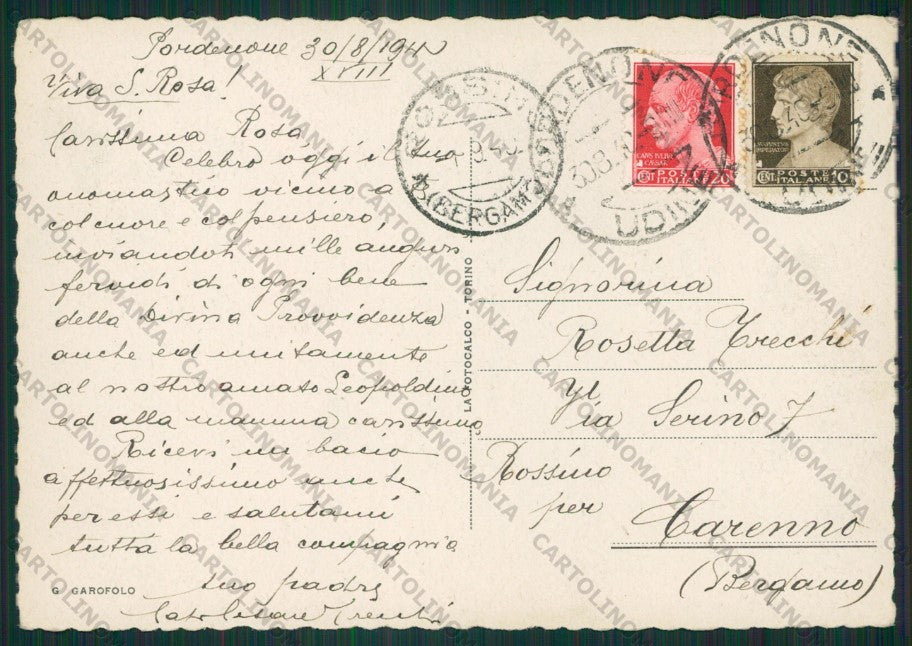 Pordenone 30/8/1940
XVIII
Viva S. Rosa!
Carissima Rosa
Celebro oggi il tuo
onomastico vicino a
col cuore e col pensiero
inviandoti mille auguri
fervidi di ogni bene
della Divina Provvidenza
anche ed unitamente
al nostro amato Leopoldino
ed alla mamma carissima
Ricevi un bacio
affettuosissimo anche
per essi e salutami
tutta la bella compagnia
tuo padre
G. GAROFOLO
LA FOTOCALCO - TORINO
ROSSINO
(BERGAMO)
PORDENONE
30.8.40
UDINE
PORDENONE
UDINE
CENT POSTE 20
ITALIANE
CENT POSTE 10
ITALIANE
Signorina
Rosetta Trecchi
Via Serino 7
Rossino
per
Carenno
(Bergamo)
CARTOLINOMANIA